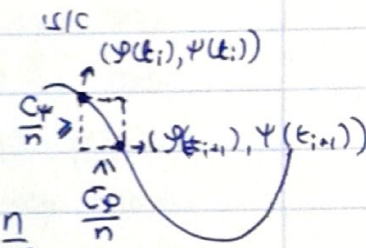 (φ(t_i), ψ(t_i))
C_ψ/n ≥
→(φ(t_{i+1}), ψ(t_{i+1}))
C_φ/n
n